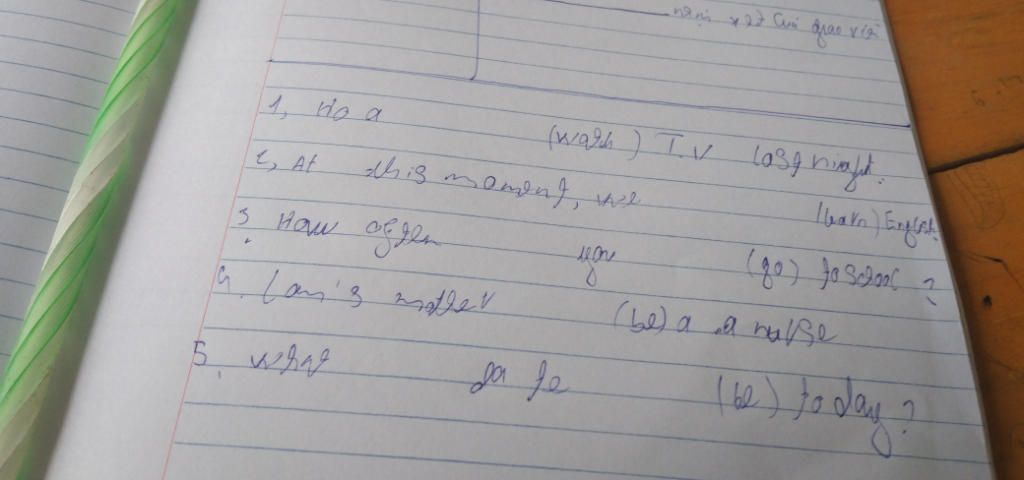 nhận xét của giáo viê
1, Hoa (wath) T.V last night.
2, At this moment, we (learn) English.
3. How often you (go) to school ?
4. Lan's mother (be) a a nurse
5. what date (be) today ?